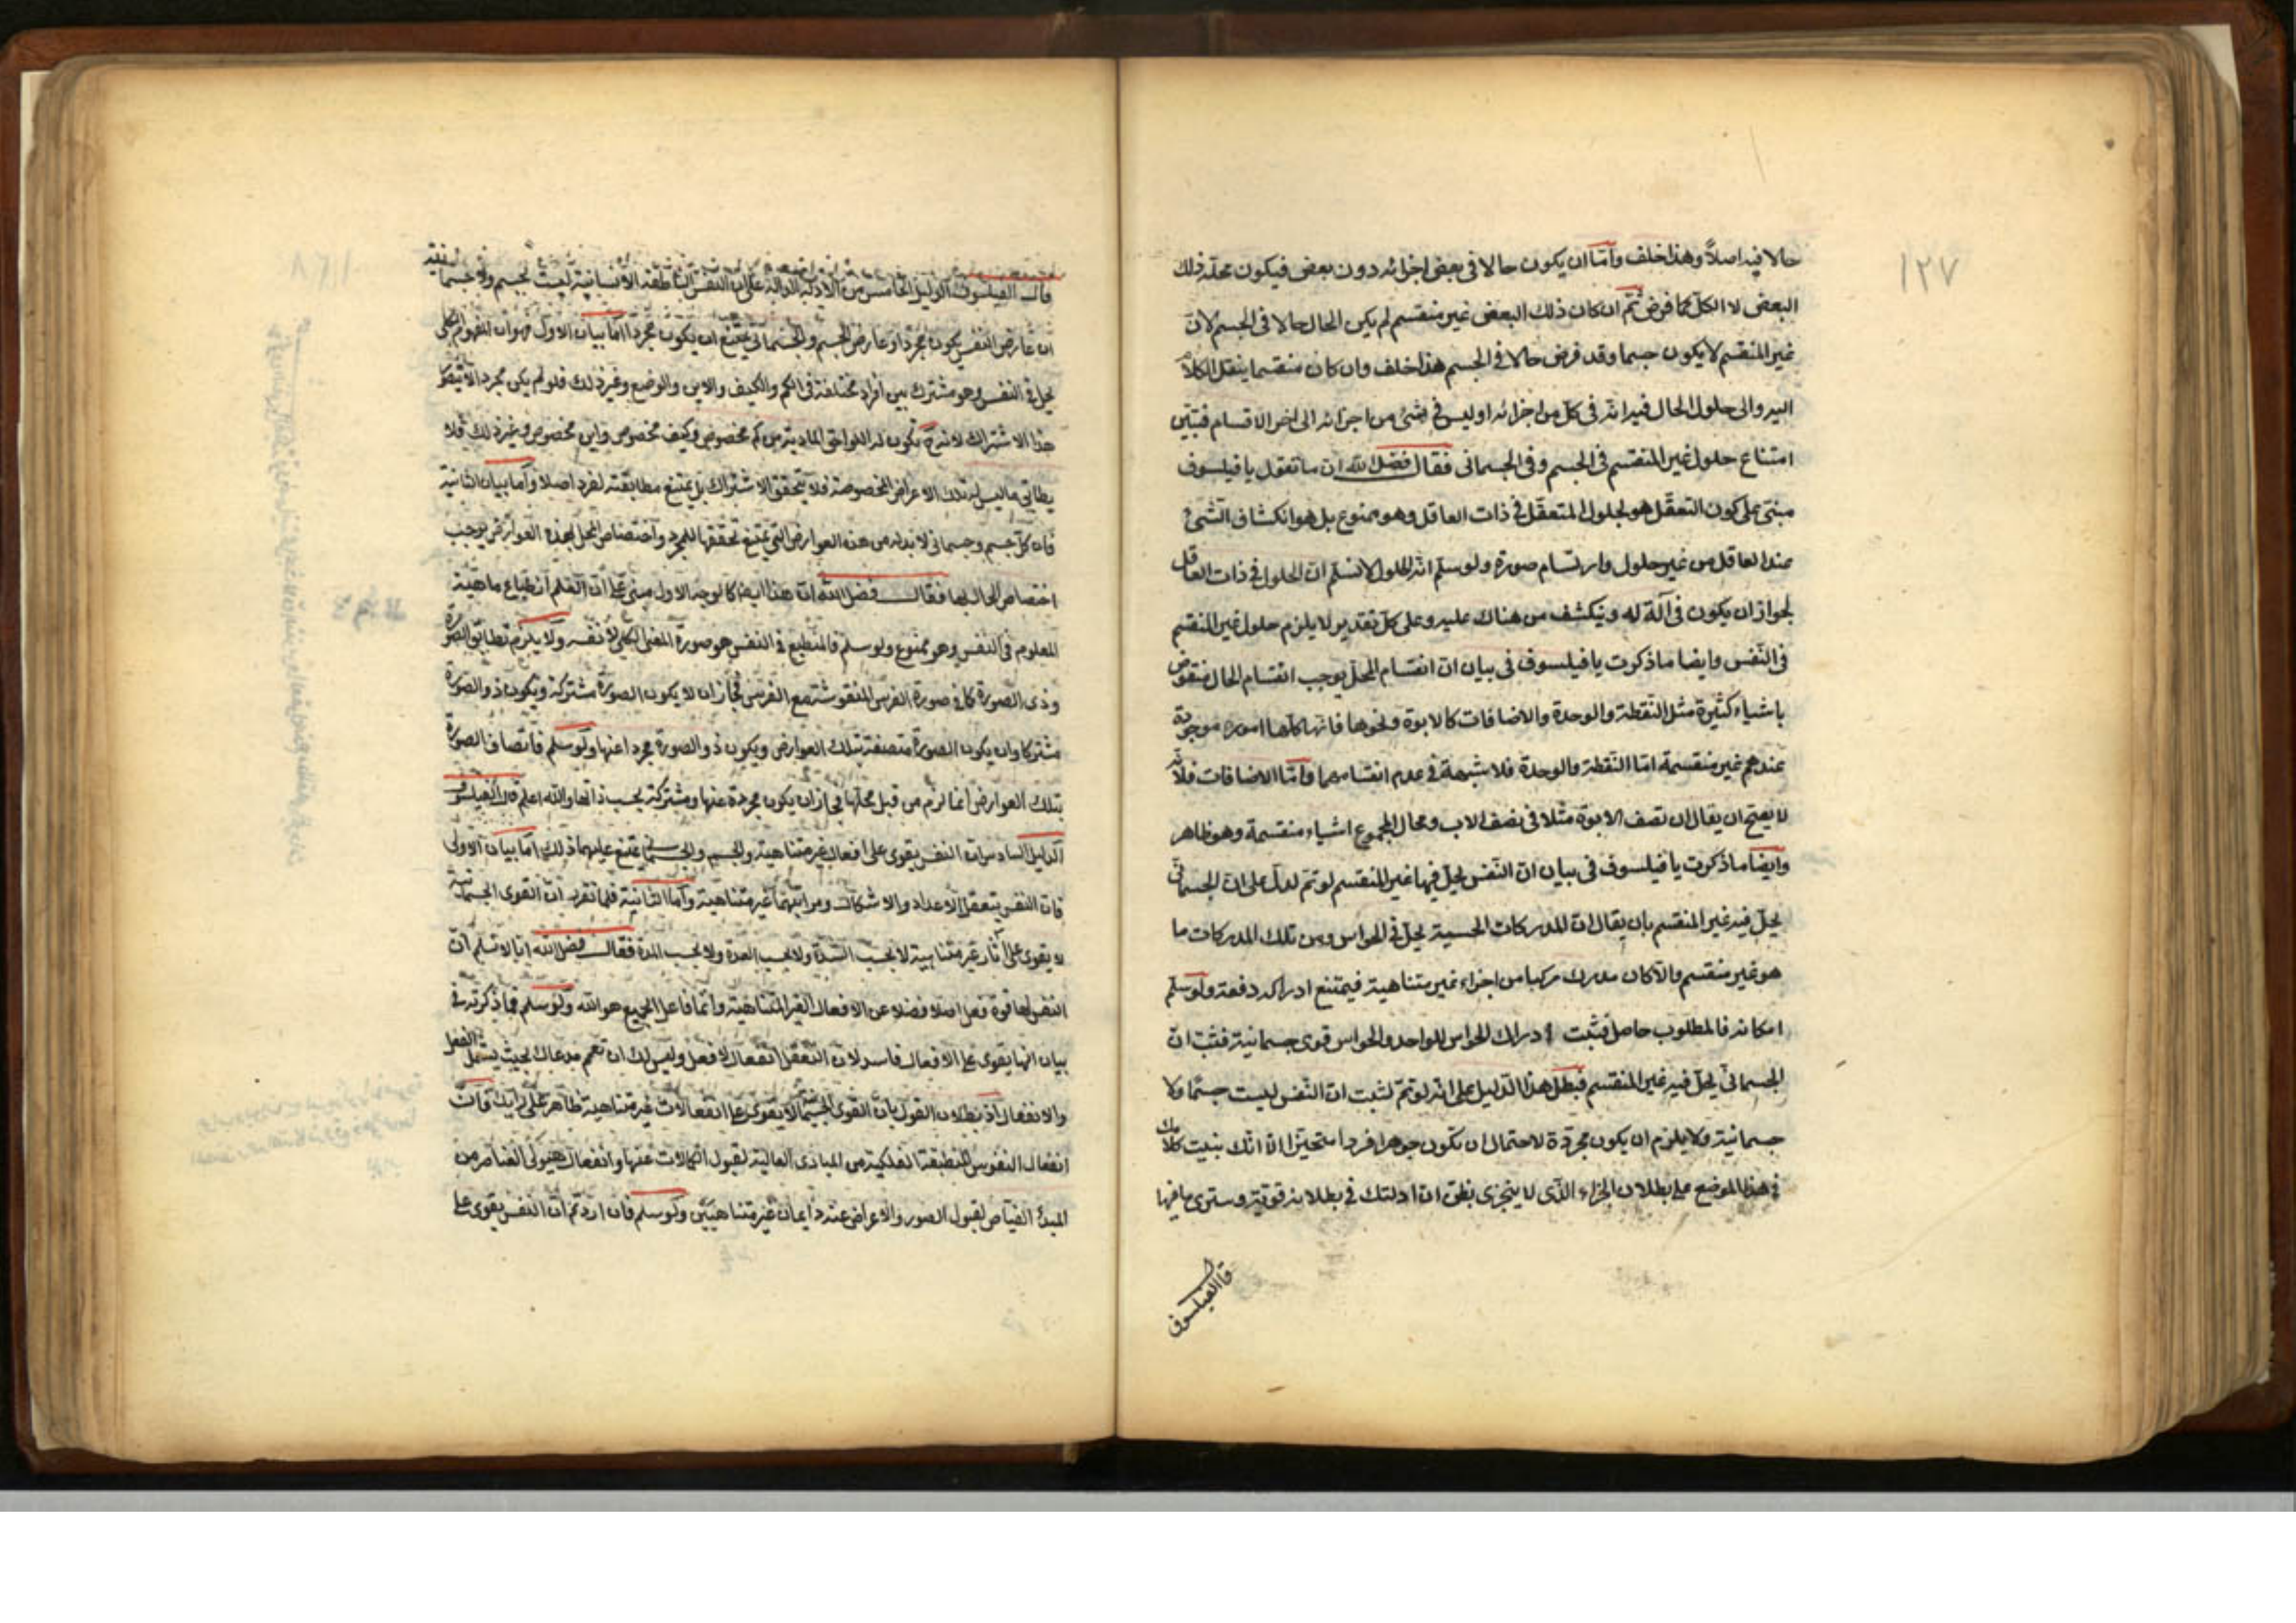 ١٢٧
حالا فيه اصلاً وهذا خلف وأمّا ان يكون حالا فى بعض اجزائه دون بعض فيكون محلّه ذلك
البعض لا الكلّ كما فرض ثم ان كان ذلك البعض غير منقسم لم يكن الحال حالا فى الجسم لانّ
غير المنقسم لا يكون جسما وقد فرض حالا فى الجسم هذا خلف وان كان منقسما ينقل الكلام
اليه والى حلول الحال فيه انّه فى كلّ من اجزائه او ليس فى شئ من اجزائه الى اخر الاقسام فتبيّن
امتناع حلول غير المنقسم فى الجسم وفى الجسمانى فقال فضل الله ان ما تقول يا فيلسوف
مبنى على كون التعقّل هو بحلول المتعقل فى ذات العاقل وهو ممنوع بل هو انكشاف الشئ
عند العاقل من غير حلول وارتسام صورة ولو سلّم انّه بالحلول لا نسلّم ان الحلول فى ذات العاقل
لجواز ان يكون فى آلة له وينكشف من هناك عليه وعلى كلّ تقدير لا يلزم حلول غير المنقسم
فى النّفس وايضا ما ذكرت يا فيلسوف فى بيان انّ انقسام المحلّ يوجب انقسام الحال منقوض
باشياء كثيرة مثل النقطة والوحدة والاضافات كالابوة ونحوها فانّها كلّها امور موجودة
عندهم غير منقسمة امّا النقطة والوحدة فلا شبهة فى عدم انقسامهما وامّا الاضافات فلانّه
لا يصّح ان يقال ان نصف الابوة مثلا فى نصف الاب ومحال المجموع اشياء منقسمة وهو ظاهر
وايضا ما ذكرت يا فيلسوف فى بيان انّ النّفس يحلّ فيها غير المنقسم لو تمّ لدلّ على انّ الجسمانّى
يحلّ فيه غير المنقسم بان يقال انّ المدركات الحسية يحلّ فى الحواس ومن تلك المدركات ما
هو غير منقسم والّا كان مدرك مركبا من اجزاء غير متناهية فيمتنع ادراكه دفعة ولو سلّم
امكانه فالمطلوب حاصل فثبت ادراك الحواس للواحد والحواس قوى جسمانية فثبت انّ
الجسمانّى يحلّ فيه غير المنقسم فبطل هذا الدّليل على انّه لو تمّ لثبت انّ النّفس ليست جسمًا ولا
جسمانية ولا يلزم ان يكون مجرّدة لاحتمال ان تكون جوهرا فردا متحيّزا الّا انّك بنيت كلامك
فى هذا الموضع على بطلان الجزء الّذى لا يتجزى بظنّ انّ ادلتك فى بطلانه قويّة وسترى ما فيها
قال الفيلسوف
قال الفيلسوف الدليل الخامس من الادلّة الدالة على انّ النفس الناطقة الانسانية ليست بجسم ولا جسمانية
ان عارض النفس يكون مجرّدا وعارض الجسم والجسمانى يمتنع ان يكون مجرّدا امّا بيان الاول فهو ان المفهوم الكلى
يحل فى النفس وهو مشترك بين افراد مختلفة فى الكم والكيف والاين والوضع وغير ذلك فلو لم يكن مجردا لا يتصوّر
هذا الاشتراك لانه ح تكون له اللواحق المادية من كم مخصوص وكيف مخصوص واين مخصوص وغير ذلك فلا
يطابق ما ليس له تلك الاعراض المخصوصة فلا يتحقق الاشتراك بل يمتنع مطابقته لفرد اصلا وامّا بيان الثانية
فان كلّ جسم وجسمانى لا بد له من هذه العوارض التى يمتنع تحققها للمجرد واختصاص المحل بهذه العوارض يوجب
اختصاص الحال بها فقال فضل الله انّ هذا ايضا كالوجه الاول مبنى على انّ العلم انطباع ماهية
المعلوم فى النفس وهو ممنوع ولو سلم فالمنطبع فى النفس هو صورة المعنى الكلى لا نفسه ولا يلزم تطابق الصورة
وذى الصورة كما فى صورة الفرس المنقوشة مع الفرس فجاز ان لا يكون الصورة مشتركة ويكون ذو الصورة
مشتركا وان يكون الصورة متصفة بتلك العوارض ويكون ذو الصورة مجردا عنها ولو سلم فاتصاف الصورة
بتلك العوارض انما لزم من قبل محلّها فجاز ان يكون مجردة عنها ومشتركة بحسب ذاتها والله اعلم قال الفيلسوف
الدليل السادس ان النفس يقوى على افعال غير متناهية والجسم والجسمانى يمتنع عليهما ذلك امّا بيان الاولى
فان النفس يتعقل الاعداد والاشكال ومراتبهما غير متناهية وامّا الثانية فلما تقرّر انّ القوى الجسمانية
لا يقوى على آثار غير متناهية لا بحسب الشدّة ولا بحسب العدة ولا بحسب المدة فقال فضل الله انا لا نسلم انّ
النفس لها قوة فعل اصلا فضلا عن الافعال الغير المتناهية وانّما فاعل الجميع هو الله ولو سلم فما ذكرته فى
بيان انها يقوى على الافعال فاسد لان التعقل انفعال لا فعل وليس لك ان تعمم مدعاك بحيث يشمل الفعل
والانفعال اذ بطلان القول بانّ القوى الجسمانية لا يقوى على انفعالات غير متناهية ظاهر على رأيك فانّ
انفعال النفوس المنطبقة الفلكية من المبادى العالية لقبول الكمالات عنها وانفعال هيولى العناصر من
المبدأ الفياض لقبول الصور والاعراض عنه دايمان غير متناهيين ولو سلم فان اردتم انّ النفس يقوى على